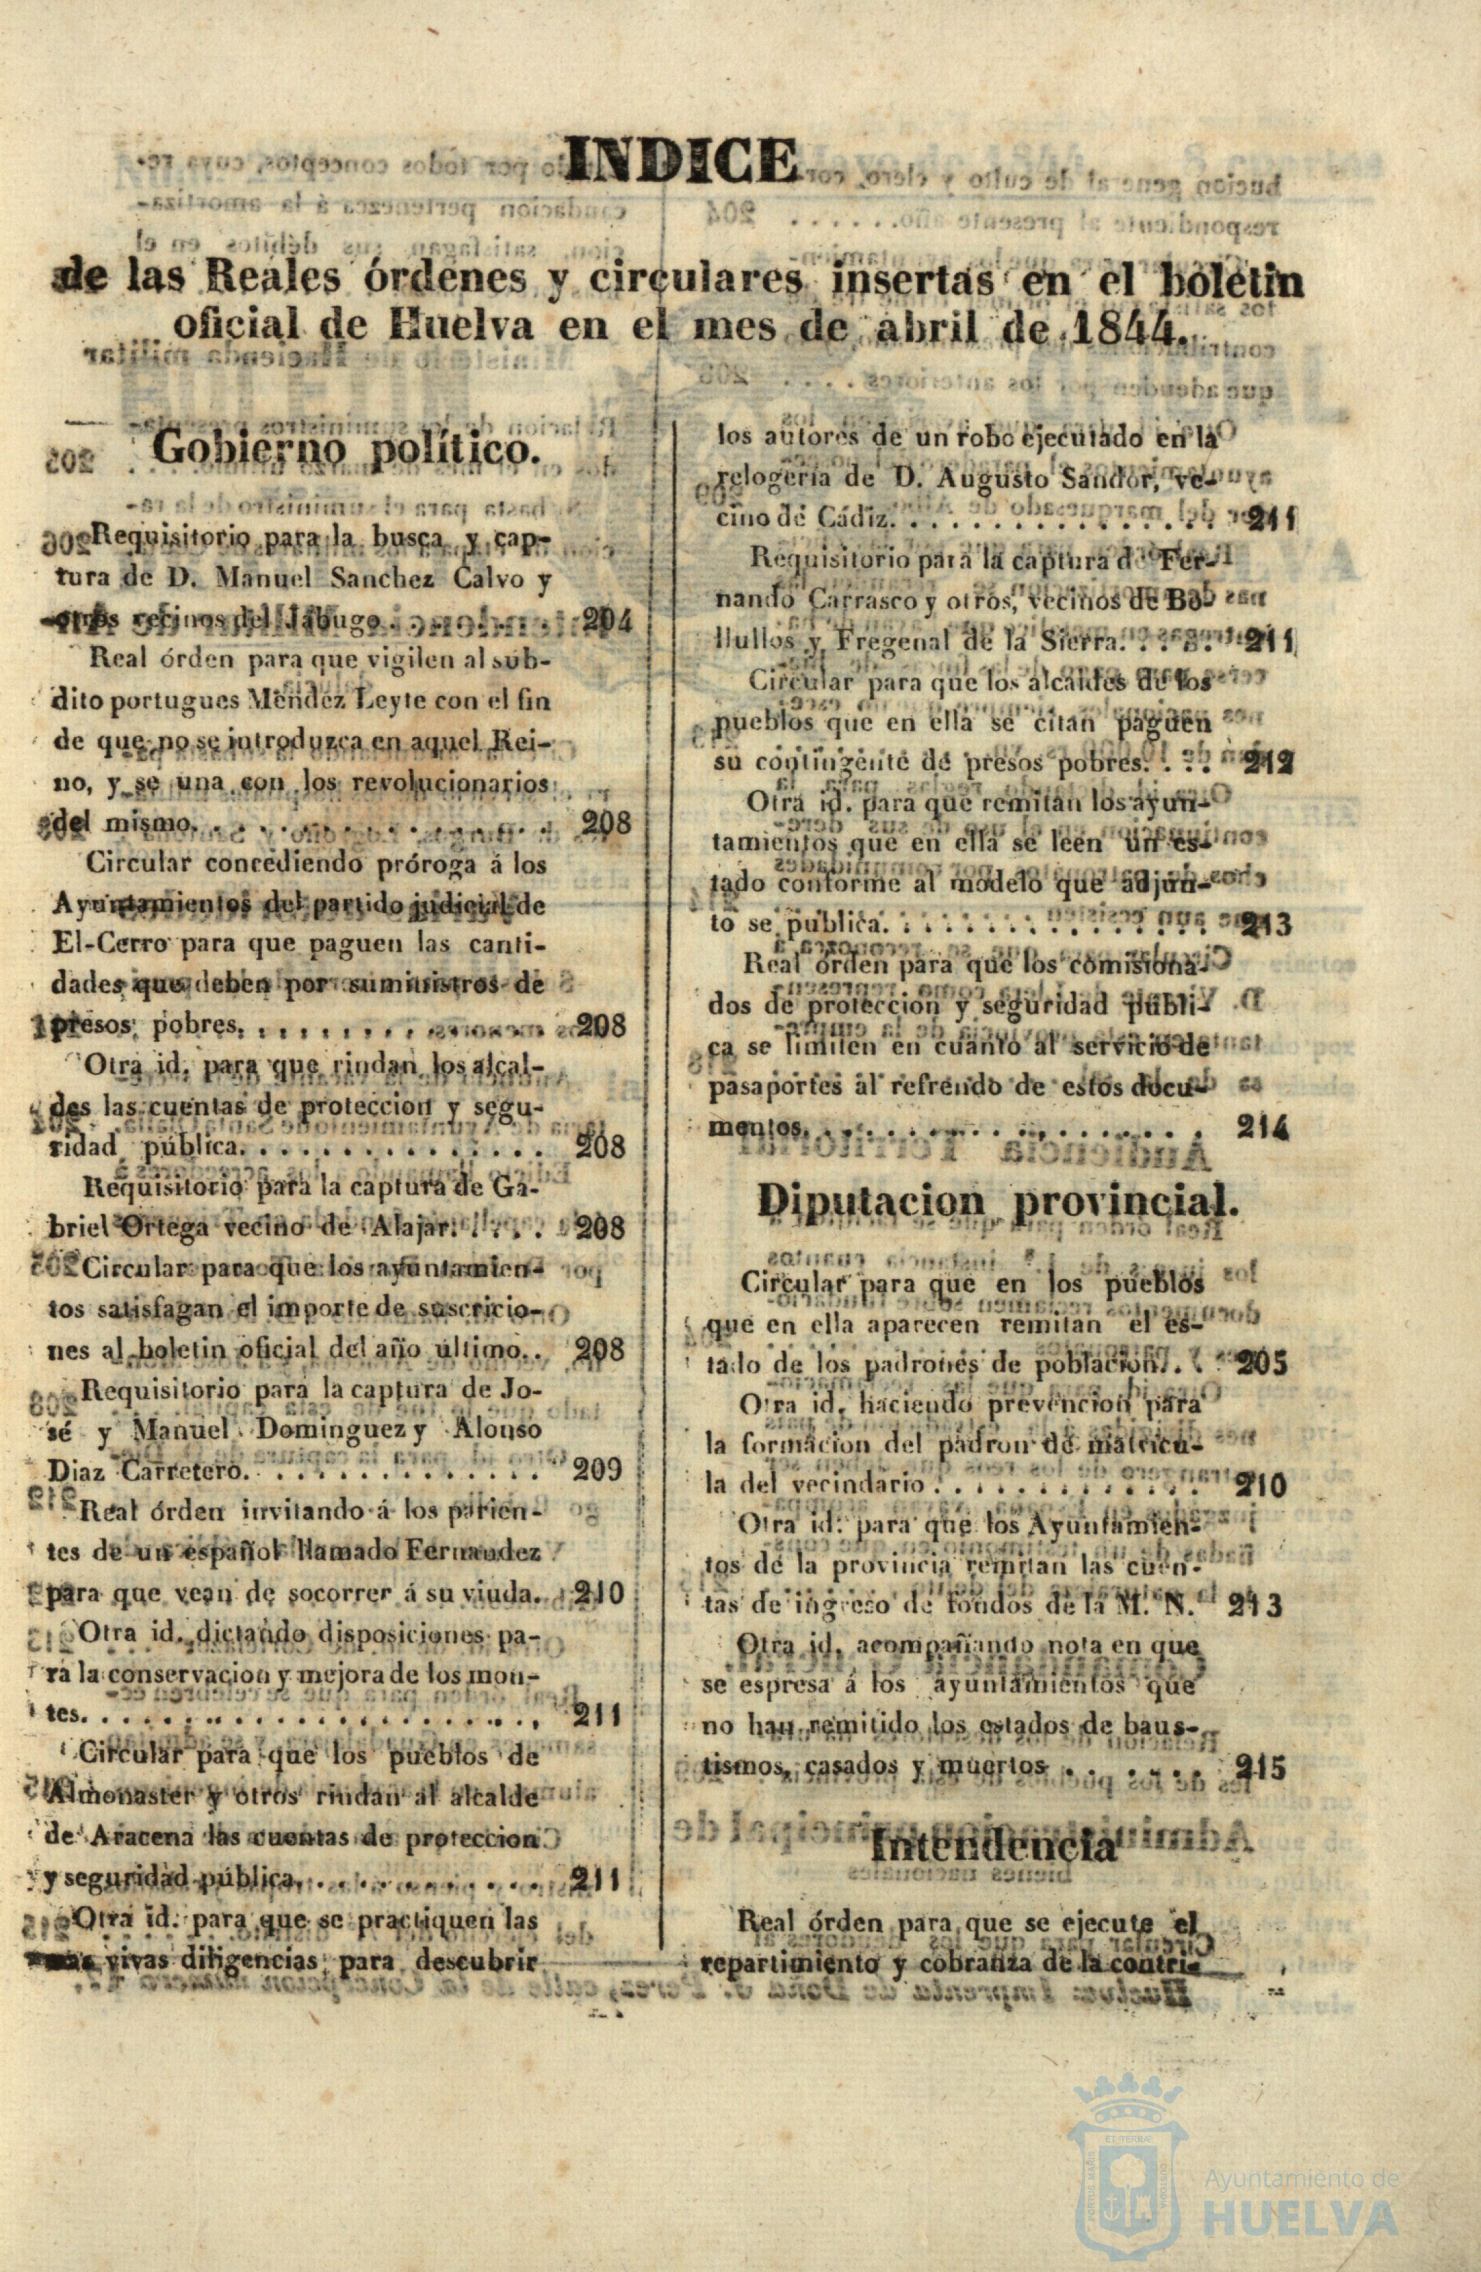 INDICE
de las Reales órdenes y circulares insertas en el boletin
oficial de Huelva en el mes de abril de 1844.
Gobierno político.
Requisitorio para la busca y cap-
tura de D. Manuel Sanchez Calvo y
otros vecinos del Jabugo. . . . . . . . 204
Real órden para que vigilen al sub-
dito portugues Mendez Leyte con el fin
de que no se introduzca en aquel Rei-
no, y se una con los revolucionarios
del mismo. . . . . . . . . . . . . . . 208
Circular concediendo próroga á los
Ayuntamientos del partido judicial de
El-Cerro para que paguen las canti-
dades que deben por suministros de
presos pobres. . . . . . . . . . . . . 208
Otra id. para que rindan los alcal-
des las cuentas de proteccion y segu-
ridad pública. . . . . . . . . . . . . 208
Requisitorio para la captura de Ga-
briel Ortega vecino de Alajar. . . . . 208
Circular para que los ayuntamien-
tos satisfagan el importe de suscricio-
nes al boletin oficial del año último. . 208
Requisitorio para la captura de Jo-
sé y Manuel Dominguez y Alonso
Diaz Carretero. . . . . . . . . . . . . 209
Real órden invitando á los parien-
tes de un español llamado Fernandez
para que vean de socorrer á su viuda. 210
Otra id. dictando disposiciones pa-
ra la conservacion y mejora de los mon-
tes. . . . . . . . . . . . . . . . . . . 211
Circular para que los pueblos de
Almonaster y otros rindan al alcalde
de Aracena las cuentas de proteccion
y seguridad pública. . . . . . . . . . 211
Otra id. para que se practiquen las
mas vivas diligencias para descubrir
los autores de un robo ejecutado en la
relogería de D. Augusto Sandor, ve-
cino de Cádiz. . . . . . . . . . . . . . 211
Requisitorio para la captura de Fer-
nando Carrasco y otros, vecinos de Bo-
llullos y Fregenal de la Sierra. . . . . 211
Circular para que los alcaldes de los
pueblos que en ella se citan paguen
su contingente de presos pobres. . . . 212
Otra id. para que remitan los ayun-
tamientos que en ella se leen un es-
tado conforme al modelo que adjun-
to se publica. . . . . . . . . . . . . . 213
Real órden para que los comisiona-
dos de proteccion y seguridad públi-
ca se limiten en cuanto al servicio de
pasaportes al refrendo de estos docu-
mentos. . . . . . . . . . . . . . . . . 214
Diputacion provincial.
Circular para que en los pueblos
que en ella aparecen remitan el es-
tado de los padrones de poblacion. . . 205
Otra id. haciendo prevencion para
la formacion del padron de matricu-
la del vecindario . . . . . . . . . . . 210
Otra id. para que los Ayuntamien-
tos de la provincia remitan las cuen-
tas de ingreso de fondos de la M. N. 213
Otra id. acompañando nota en que
se espresa á los ayuntamientos que
no han remitido los estados de baus-
tismos, casados y muertos . . . . . . . 215
Intendencia
Real órden para que se ejecute el
repartimiento y cobranza de la contri-
ET TERRÆ
PORTUS MARIS
CUSTODIA
Ayuntamiento de
HUELVA